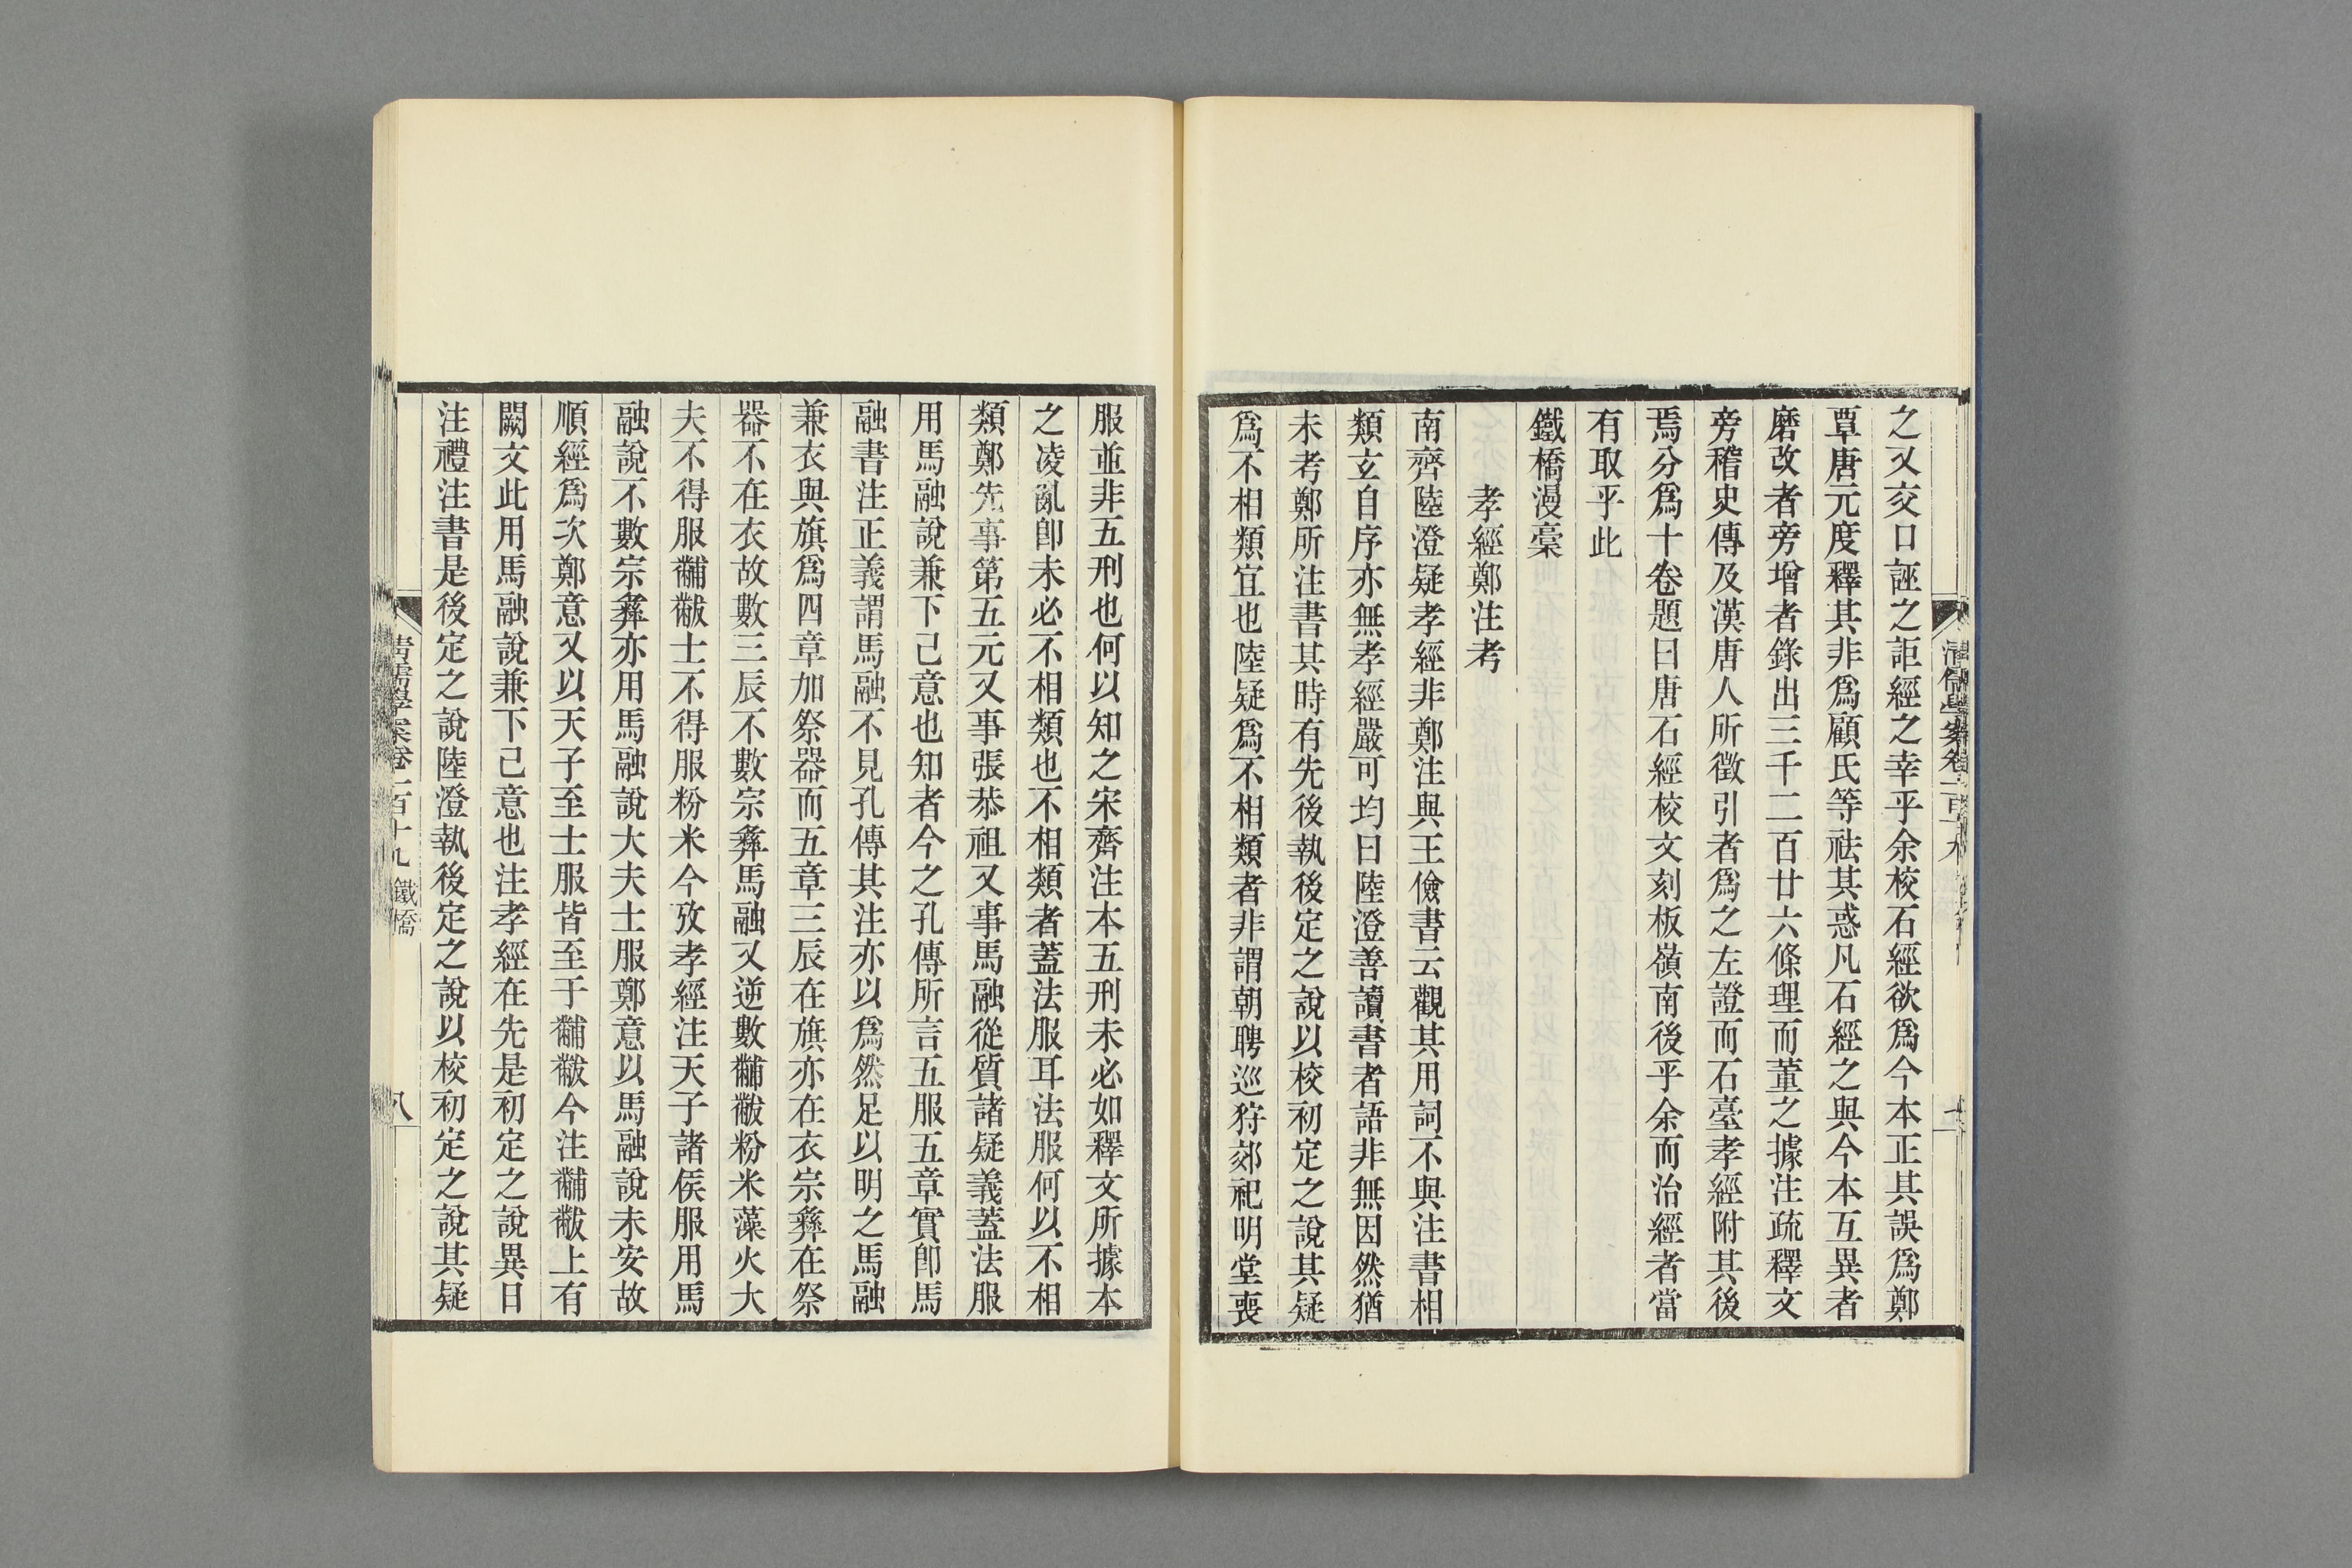 之又交口誣之詎經之幸乎余校石經欲爲今本正其誤爲鄭
覃唐元度釋其非爲顧氏等祛其惑凡石經之與今本互異者
磨改者旁增者錄出三千二百廿六條理而董之據注疏釋文
旁稽史傳及漢唐人所徵引者爲之左證而石臺孝經附其後
焉分爲十卷題曰唐石經校文刻板嶺南後乎余而治經者當
有取乎此
鐵橋漫稾
孝經鄭注考
南齊陸澄疑孝經非鄭注與王儉書云觀其用詞不與注書相
類玄自序亦無孝經嚴可均曰陸澄善讀書者語非無因然猶
未考鄭所注書其時有先後執後定之說以校初定之說其疑
爲不相類宜也陸疑爲不相類者非謂朝聘巡狩郊祀明堂喪
服並非五刑也何以知之宋齊注本五刑未必如釋文所據本
之凌亂卽未必不相類也不相類者蓋法服耳法服何以不相
類鄭先事第五元又事張恭祖又事馬融從質諸疑義蓋法服
用馬融說兼下己意也知者今之孔傳所言五服五章實卽馬
融書注正義謂馬融不見孔傳其注亦以爲然足以明之馬融
兼衣與旗爲四章加祭器而五章三辰在旗亦在衣宗彝在祭
器不在衣故數三辰不數宗彝馬融又逆數黼黻粉米藻火大
夫不得服黼黻士不得服粉米今攷孝經注天子諸侯服用馬
融說不數宗彝亦用馬融說大夫士服鄭意以馬融說未安故
順經爲次鄭意又以天子至士服皆至于黼黻今注黼黻上有
闕文此用馬融說兼下己意也注孝經在先是初定之說異日
注禮注書是後定之說陸澄執後定之說以校初定之說其疑
清儒學案卷一百十九 鐵橋 八